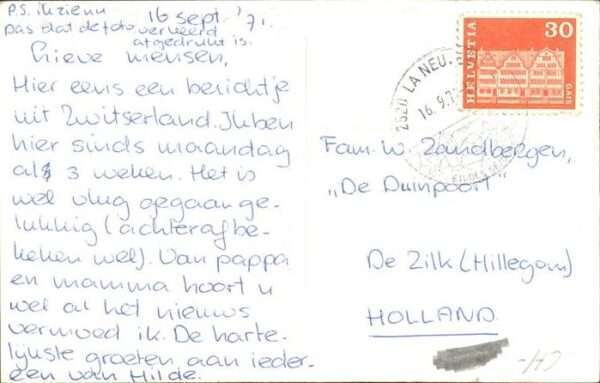 P.S. ik zie nu
pas dat de foto verkeerd
afgedrukt is.
16 sept. '71.
Lieve mensen,
Hier eens een berichtje
uit Zwitserland. Ik ben
hier sinds maandag
als 3 weken. Het is
wel vlug gegaan ge-
lukkig (achterafbe-
keken wel). Van pappa
en mamma hoort u
wel al het nieuws
vermoed ik. De harte-
lijkste groeten aan ieder-
een van Hilde.
HELVETIA
30
GAIS
2520 LA NEU
16.9.7
Fam. W. Zandbergen,
"De Duinpoort"
De Zilk (Hillegom)
HOLLAND